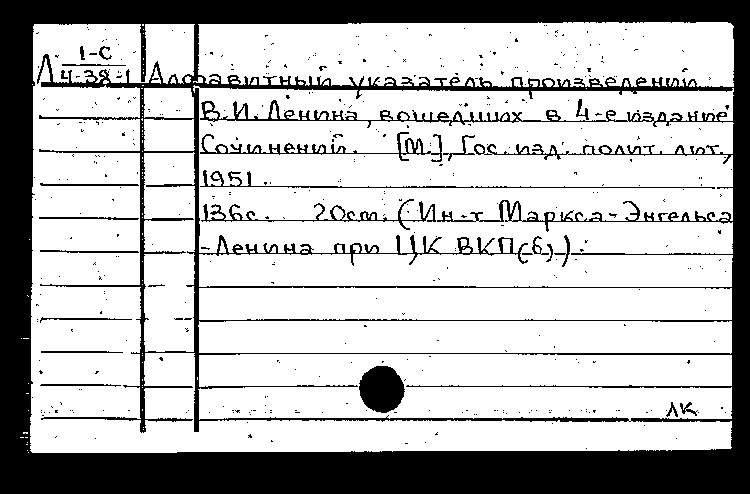 1-С
Л 4-38-1 Алфавитный указатель произведений
В.И. Ленина, вошедших в 4-е издание
Сочинений. [М.], Гос. изд. полит. лит.,
1951.
136с. 20см. (Ин-т Маркса-Энгельса
-Ленина при ЦК ВКП(б).)
ЛК